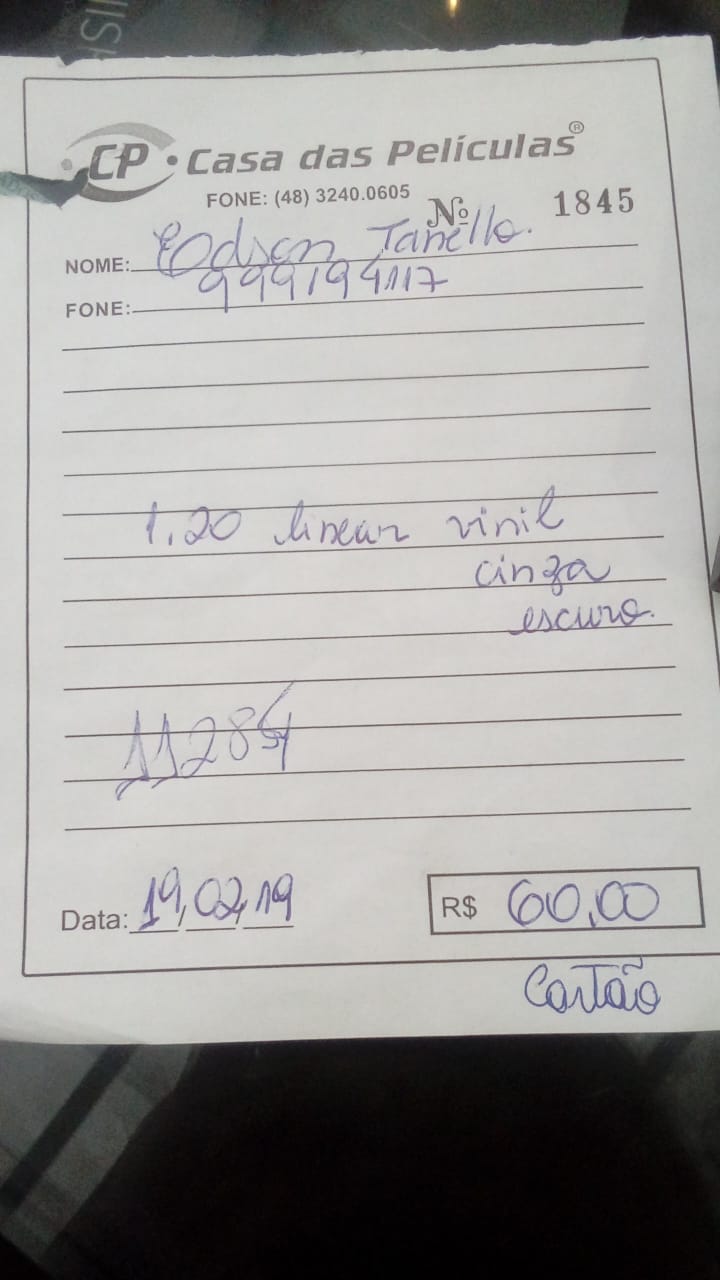 CP • Casa das Películas®
FONE: (48) 3240.0605
Nº 1845
NOME: Edson Tanello.
FONE: 999194117
1.20 linear vinil
cinza
escuro.
11284
Data: 19,02,19
R$ 60,00
Cartão